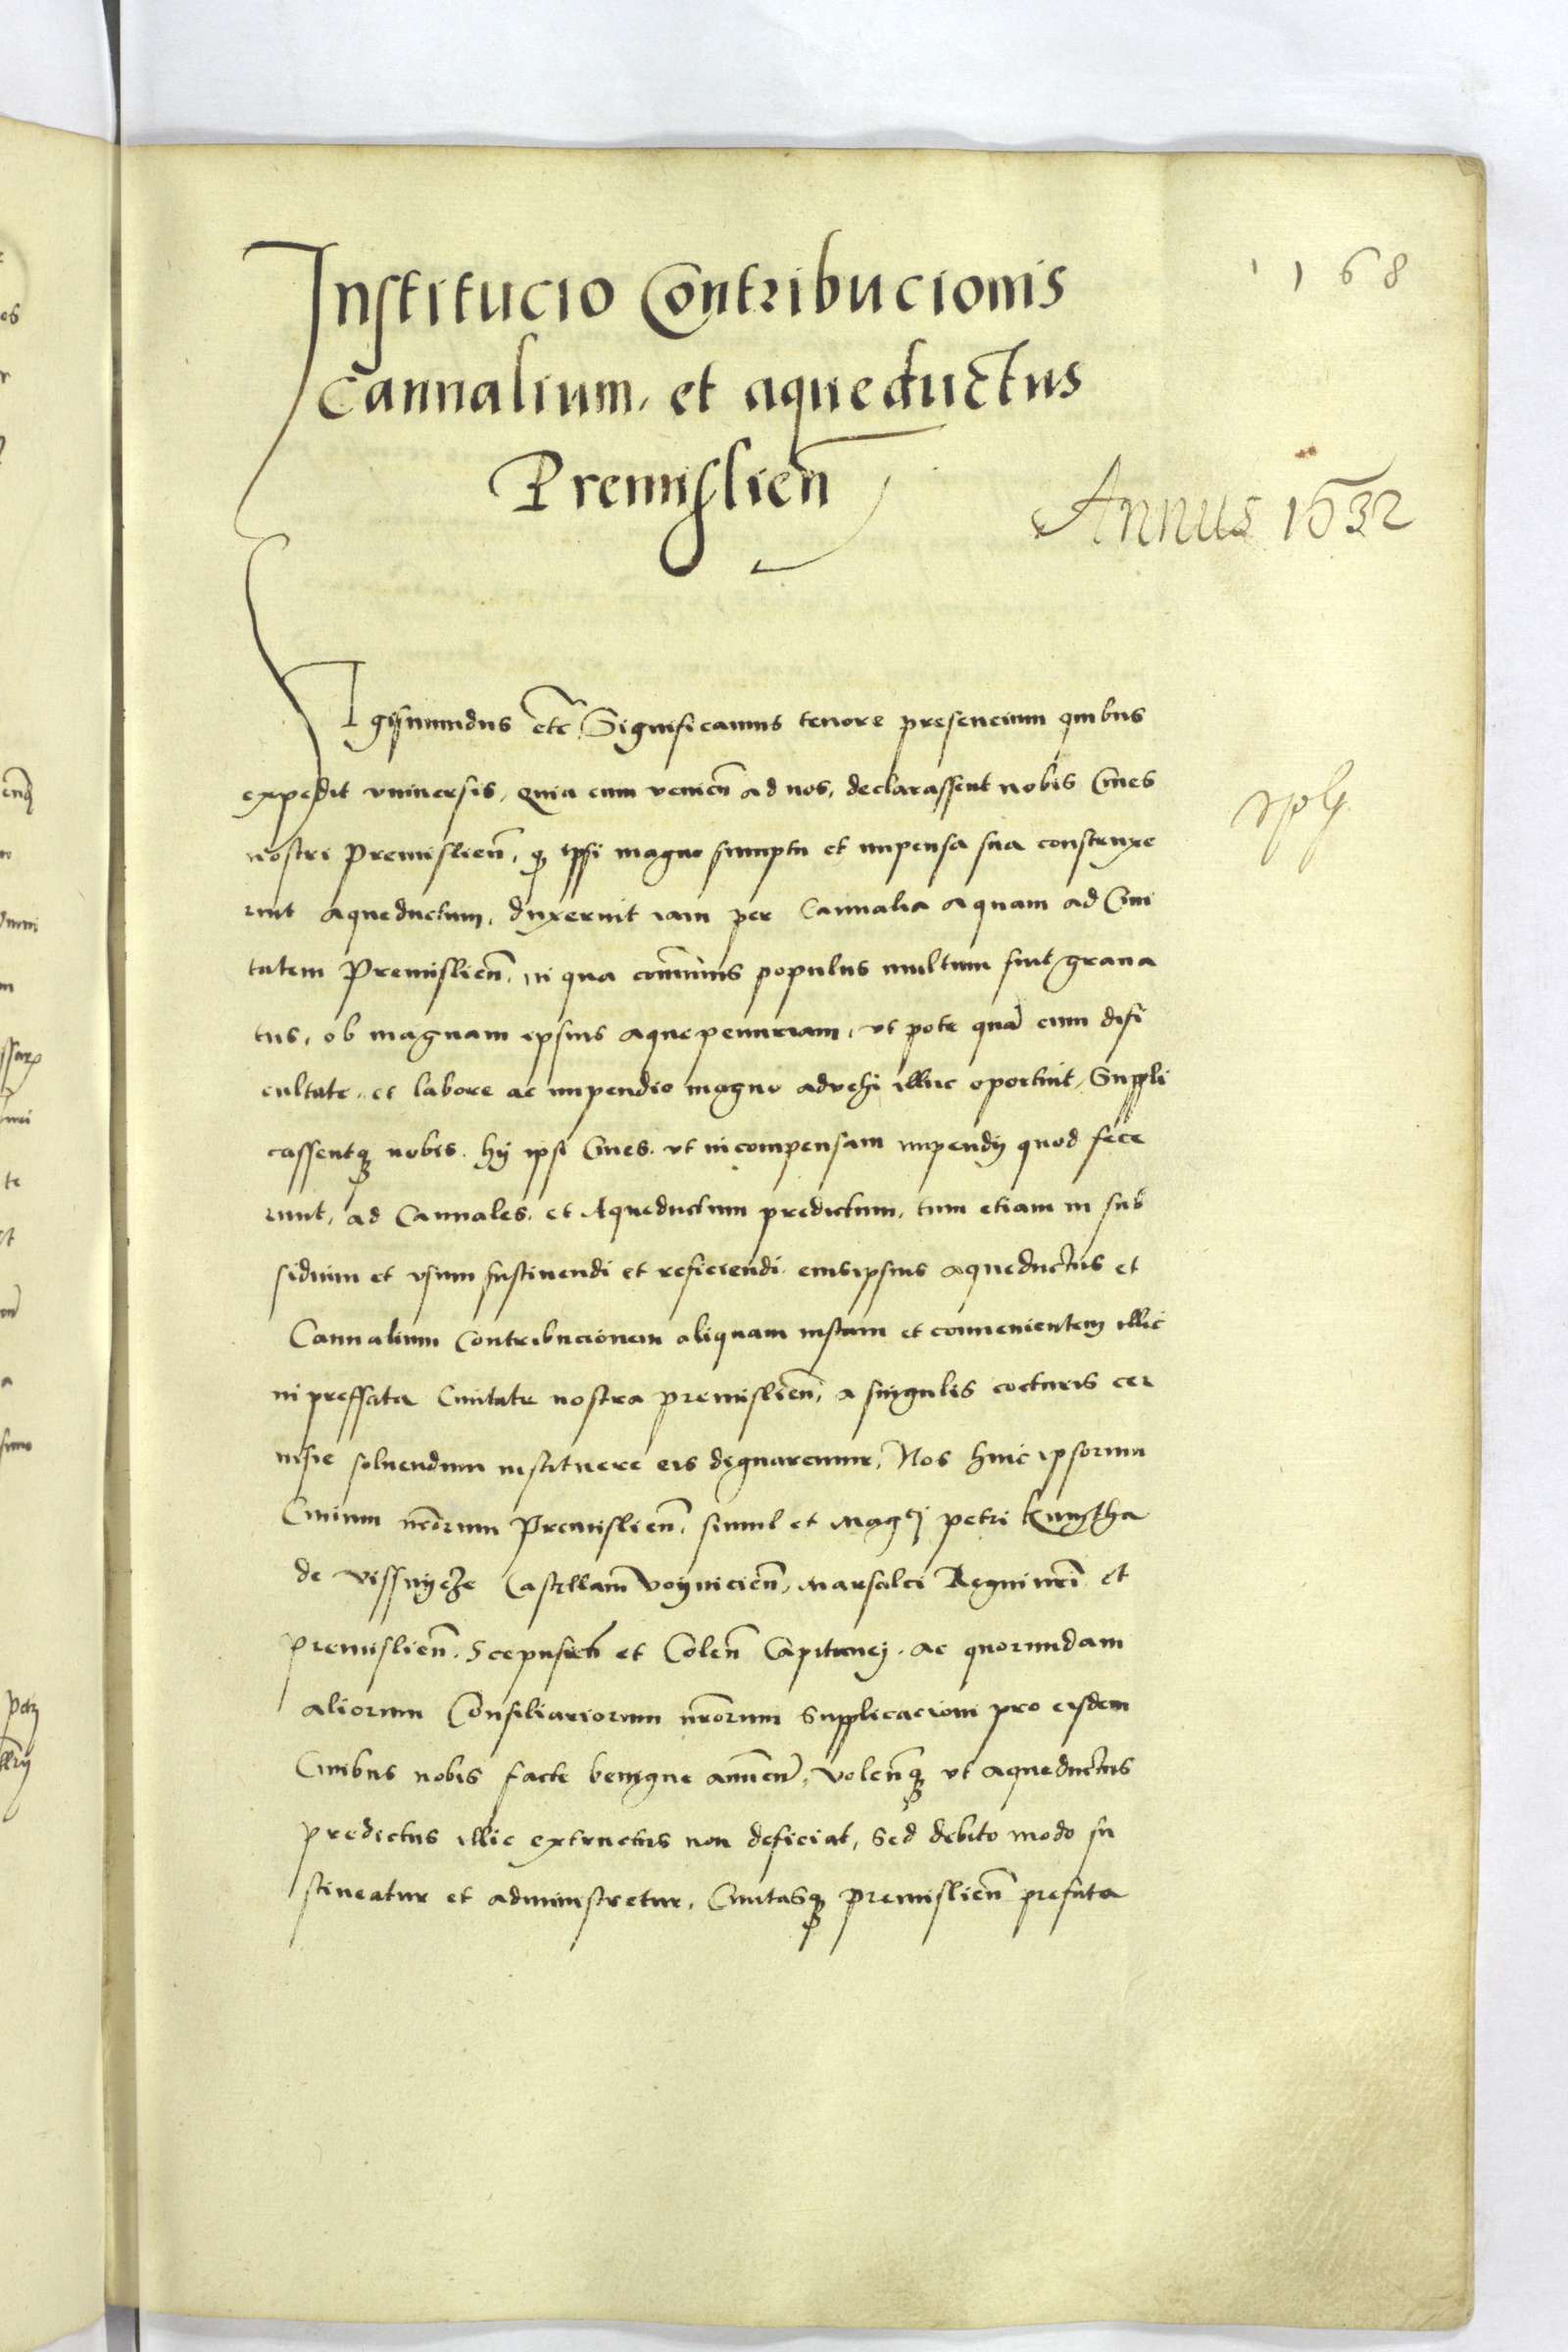 Institucio Contribucionis
Cannalium, et aqueductus
Premislien̄
168
Annus 1532
Sigismundus etc̄ Significamus tenore presencium quibus
expedit vniuersis, Quia cum venien̄ ad nos, declarassent nobis Ciues
nostri Premislien̄, q ipsi magno sumptu et impensa sua construxe
runt aqueductum, duxerunt iam per Cannalia aquam ad Ciui
tatem Premislien̄, in qua com̄unis populus multum fuit graua
tus, ob magnam ipsius aque penuriam, vt pote quā cum difi
cultate, et labore ac impendio magno advehi illuc oportuit, Suppli
cassentq nobis, hij ipsi Ciues, vt in compensam impendij quod fece
runt, ad Cannales, et Aqueductum predictum, tum etiam in sub
sidium et vsum sustinendi et reficiendi eiusipsius aqueductus et
Cannalium Contribucionem aliquam iustam et conuenientem illic
in preffata Ciuitate nostra premislien̄, a singulis cocturis cer
uisie soluendum instituere eis dignaremur, Nos huic ipsorum
Ciuium nr̄orum Premislien̄, simul et Mag̃ci petri Kmytha
de vissnycze Castellani Voynicien̄, Marsalci Regni nr̄i et
premislien̄, Scepusien̄ et Colen̄ Capitanei, ac quorundam
aliorum Consiliariorum nr̄orum Supplicacioni pro eisdem
Ciuibus nobis facte benigne annuen̄, Volen̄q vt aqueductus
predictus illic extructus non deficiat, Sed debito modo su
stineatur et administretur, Ciuitasq Premislien̄ prefata